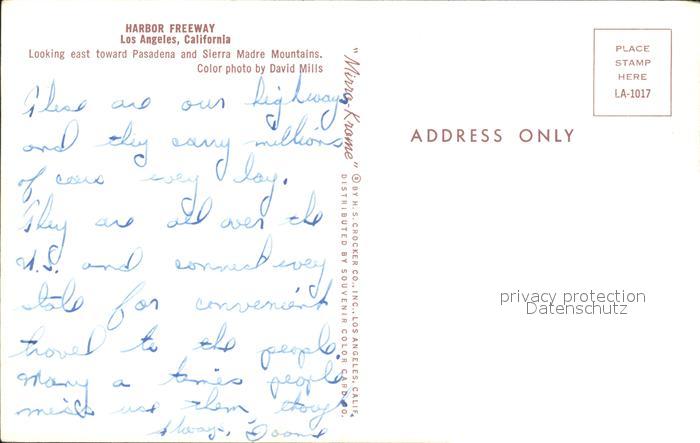 HARBOR FREEWAY
Los Angeles, California
Looking east toward Pasadena and Sierra Madre Mountains.
Color photo by David Mills
These are our highways
and they carry millions
of cars every day.
They are all over the
U.S. and connect every
state for convenient
travel to the people.
Many a times people
use them
"Mirro-Krome" ® BY H. S. CROCKER CO., INC., LOS ANGELES, CALIF.
DISTRIBUTED BY SOUVENIR COLOR CARD CO.
PLACE
STAMP
HERE
LA-1017
ADDRESS ONLY
privacy protection
Datenschutz